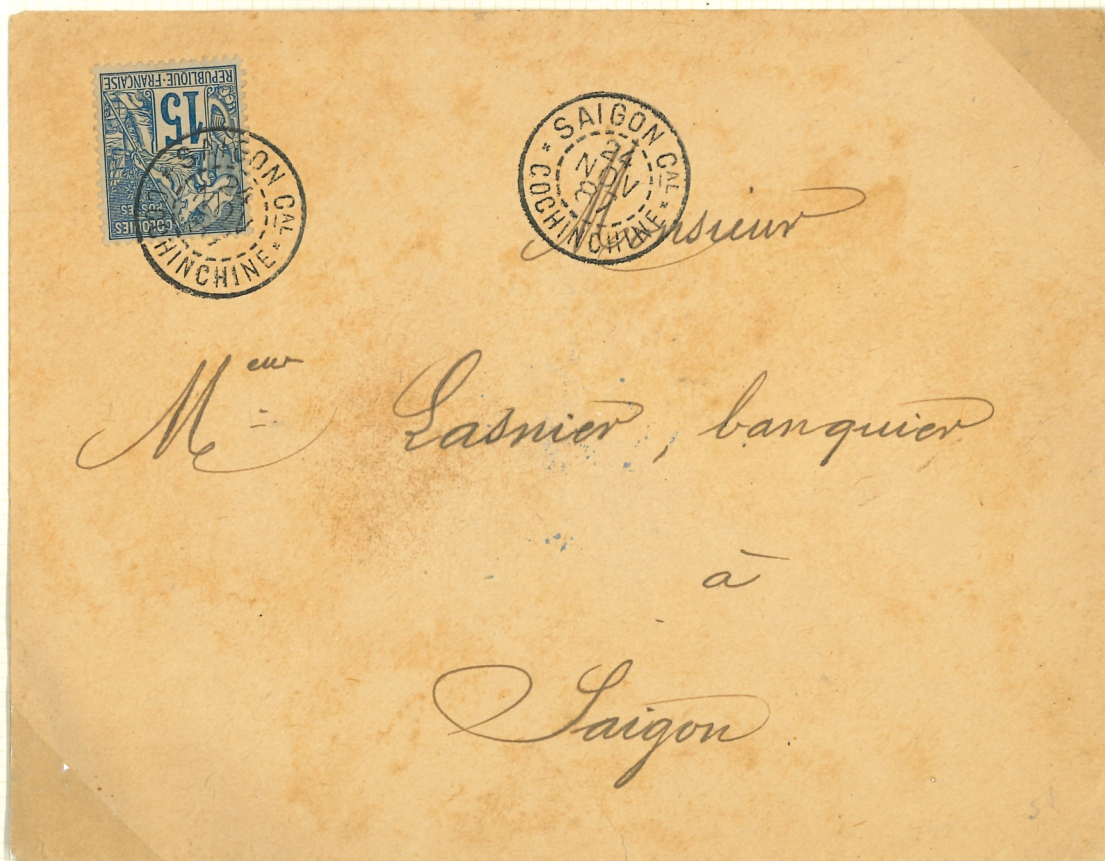 REPUBLIQUE·FRANÇAISE
15
COLONIES
POSTES
SAIGON CAL
COCHINCHINE
SAIGON CAL
24
NOV
COCHINCHINE
Monsieur
Meur Lasnier, banquier
à
Saigon
51